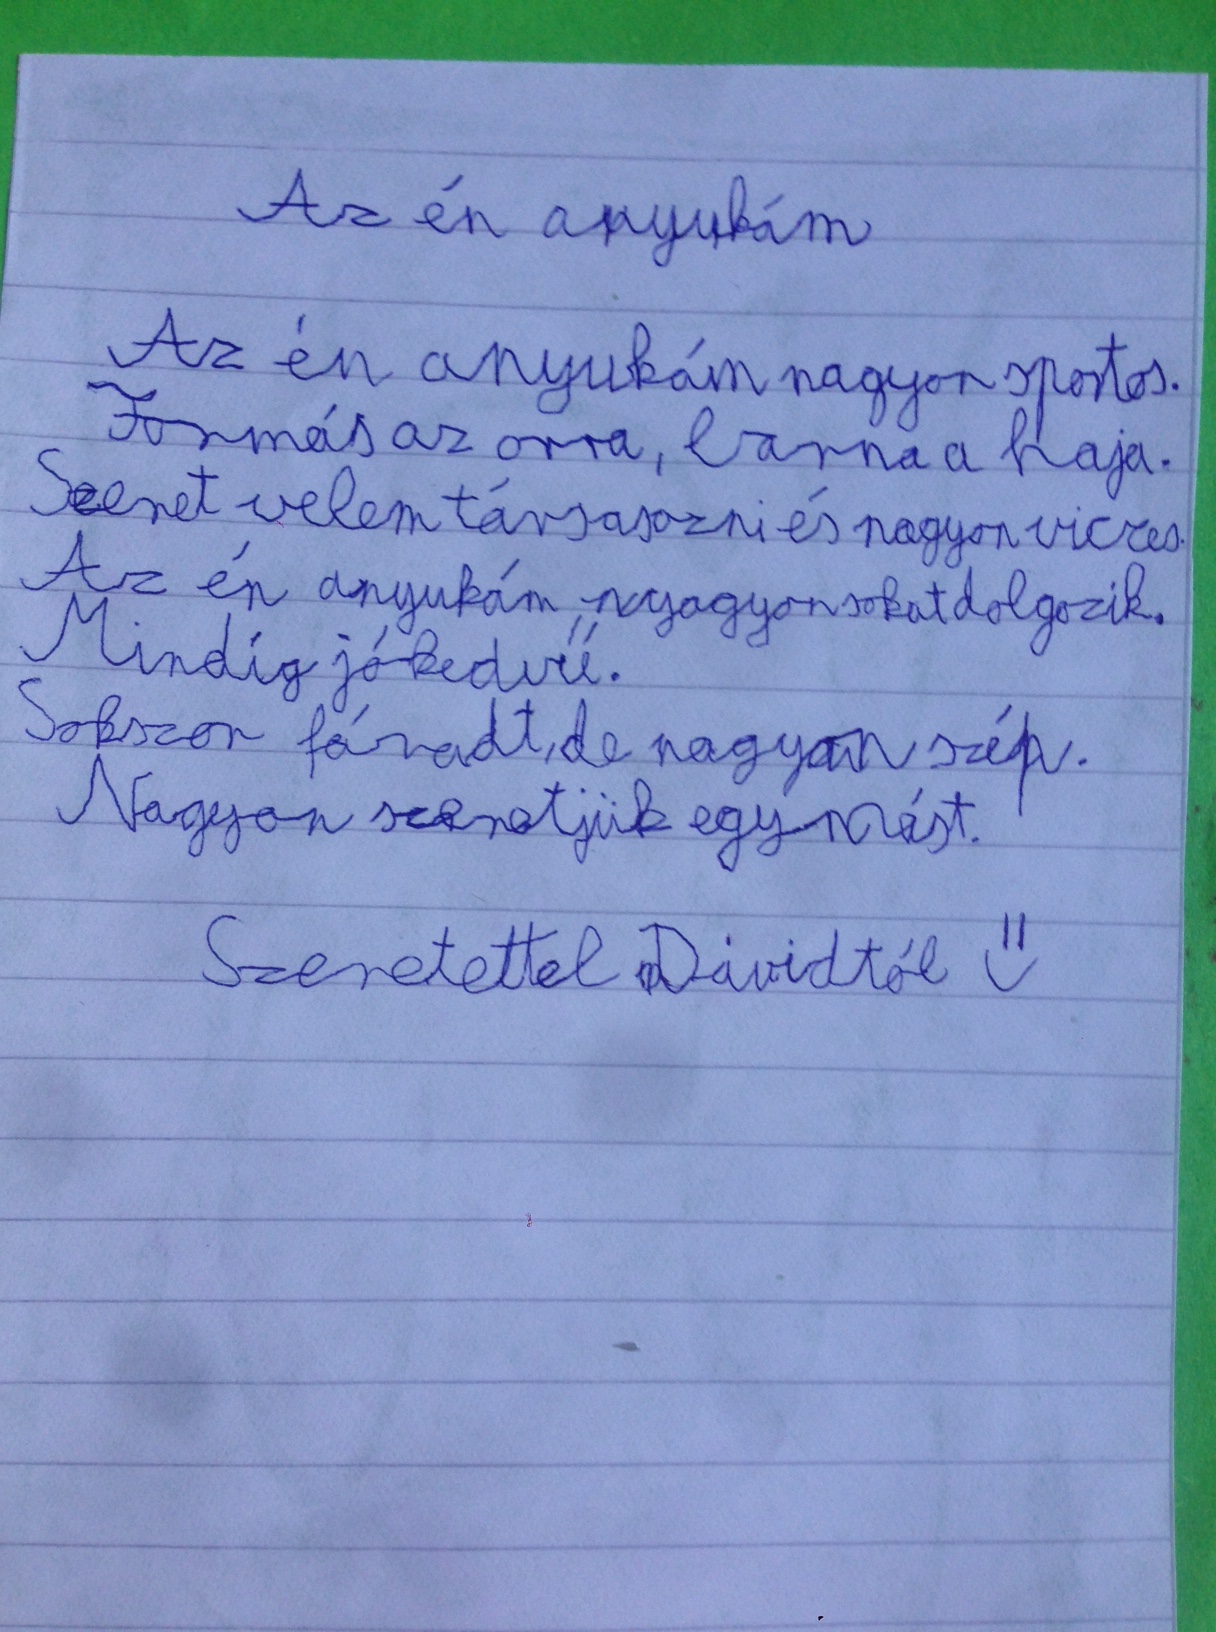 Az én anyukám
Az én anyukám nagyon sportos.
Formás az orra, barna a haja.
Szeret velem társasozni és nagyon vicces.
Az én anyukám nyagyon sokat dolgozik.
Mindig jókedvű.
Sokszor fáradt, de nagyon szép.
Nagyon szeretjük egymást.
Szeretettel Dávidtól